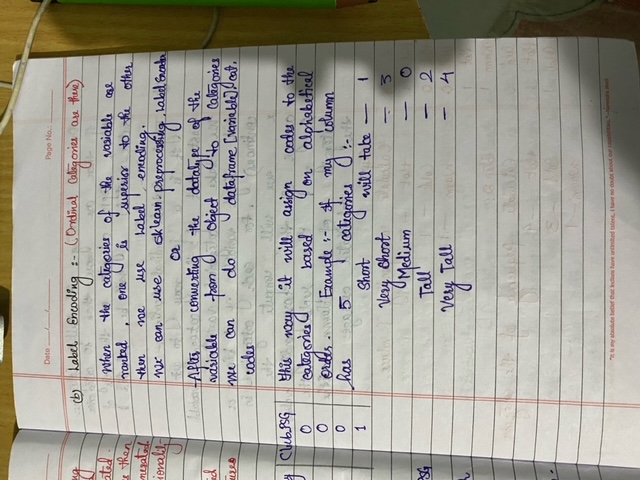 Date ___/___/___
Page No.: ______
(b) Label Encoding :- (Ordinal Categories are these)
When the categories of the variable are
ranked, one is superior to the other
then we use Label encoding.
We can use sklearn.preprocessing.LabelEncoder
Or
After converting the datatype of the
variable from object to categories
we can do dataframe[variable].cat.
codes
this way it will assign codes to the
categories based on alphabetical
order. Example :- if my column
has 5 categories :-
Short will take — 1
Very Short — 3
Medium — 0
Tall — 2
Very Tall — 4
ated.
then
onality
Club_PSG
0
0
0
1
PSG